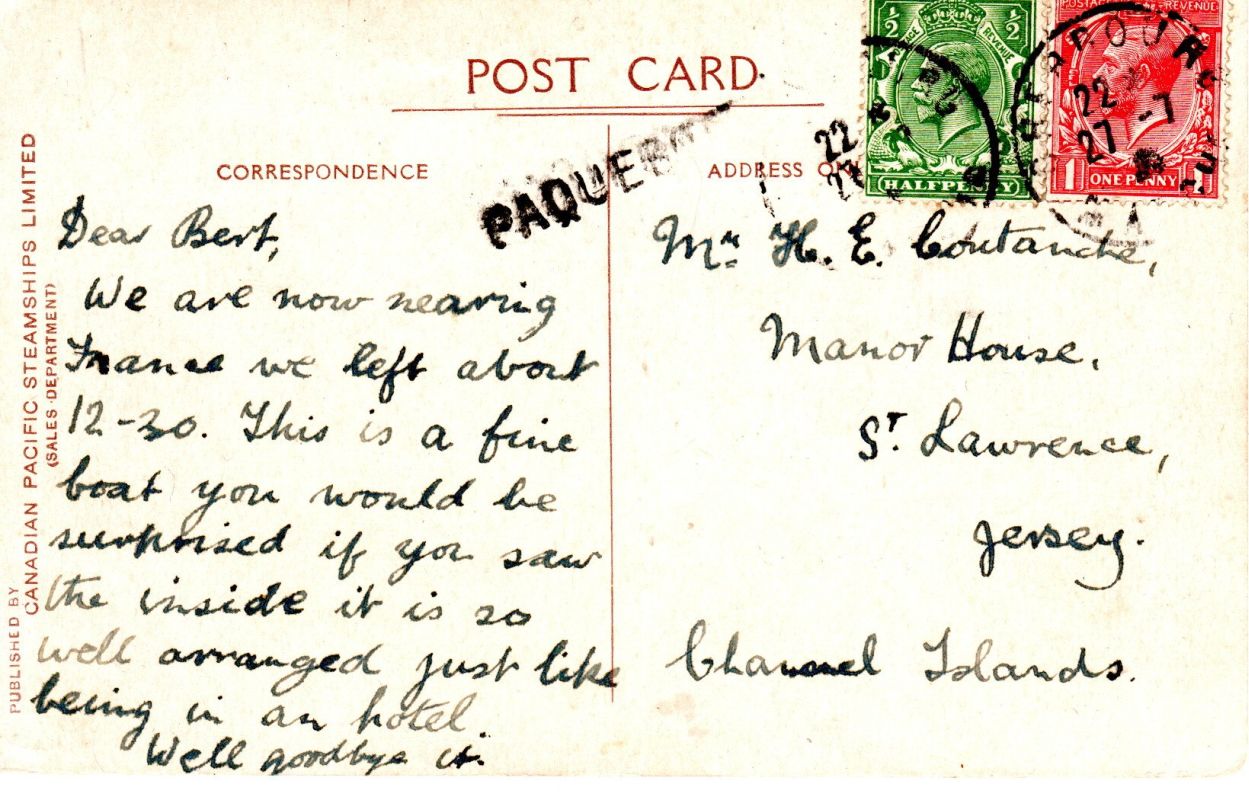 POST CARD
CORRESPONDENCE
ADDRESS
PAQUEB
PUBLISHED BY
CANADIAN PACIFIC STEAMSHIPS LIMITED
(SALES DEPARTMENT)
½ ½
REVENUE
HALFPENNY
POSTAGE REVENUE
1 ONE PENNY 1
22
27
22
27-7
Dear Bert,
We are now nearing
France we left about
12-30. This is a fine
boat you would be
surprised if you saw
the inside it is so
well arranged just like
being in an hotel.
Well goodbye
Mr. H. E. Coutanche,
Manor House,
St. Lawrence,
Jersey.
Channel Islands.